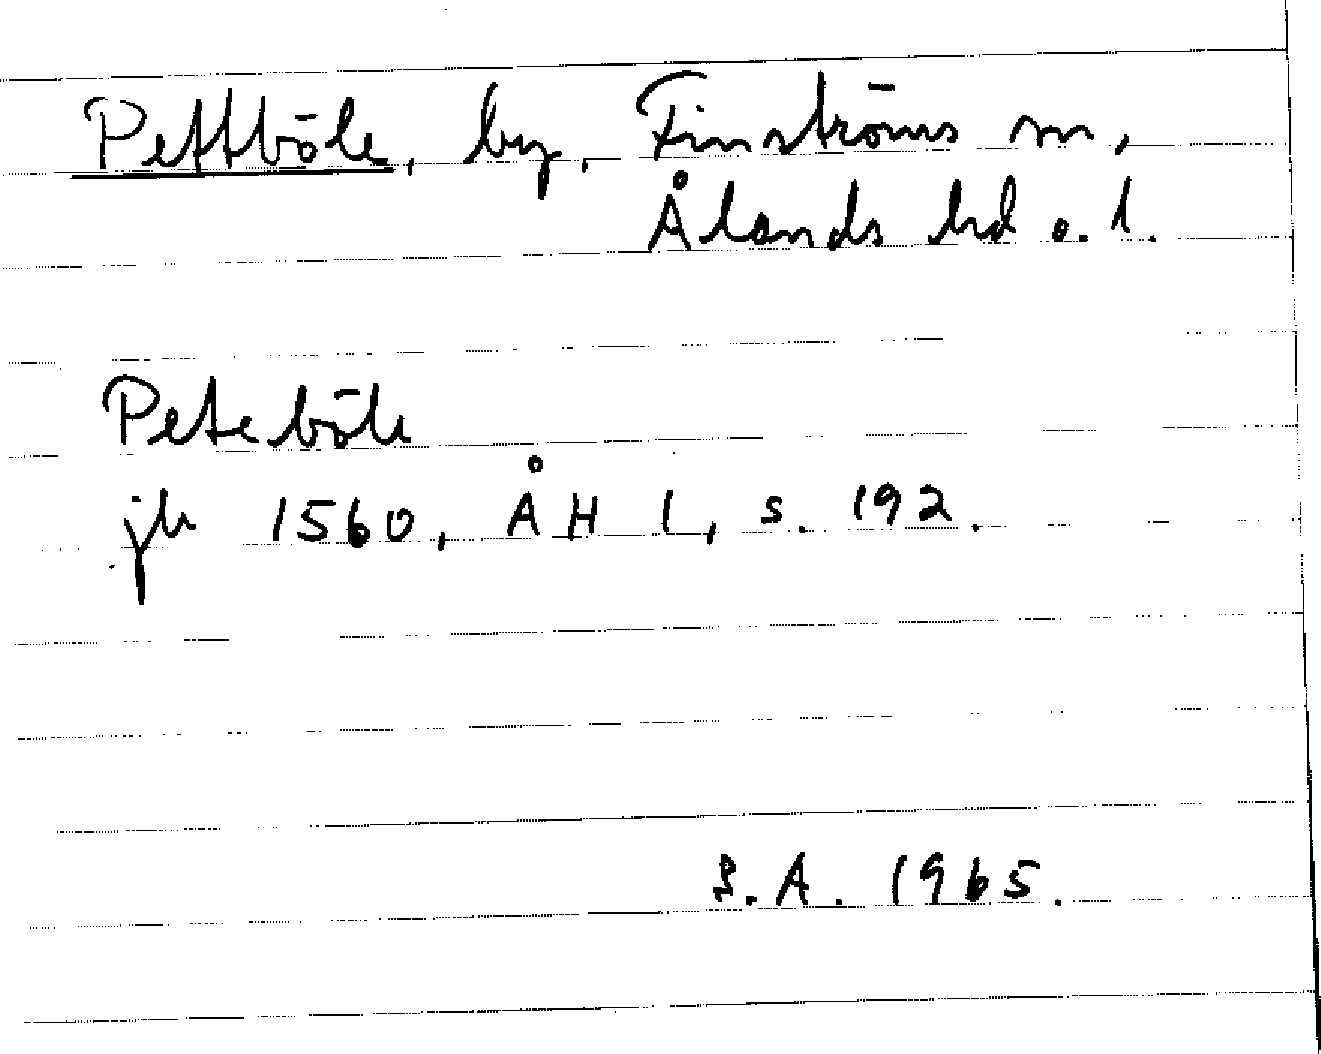 Pettböle, by, Finströms sn,
Ålands hd o. l.
Peteböle
jb 1560, ÅH I, s. 192.
S.A. 1965.